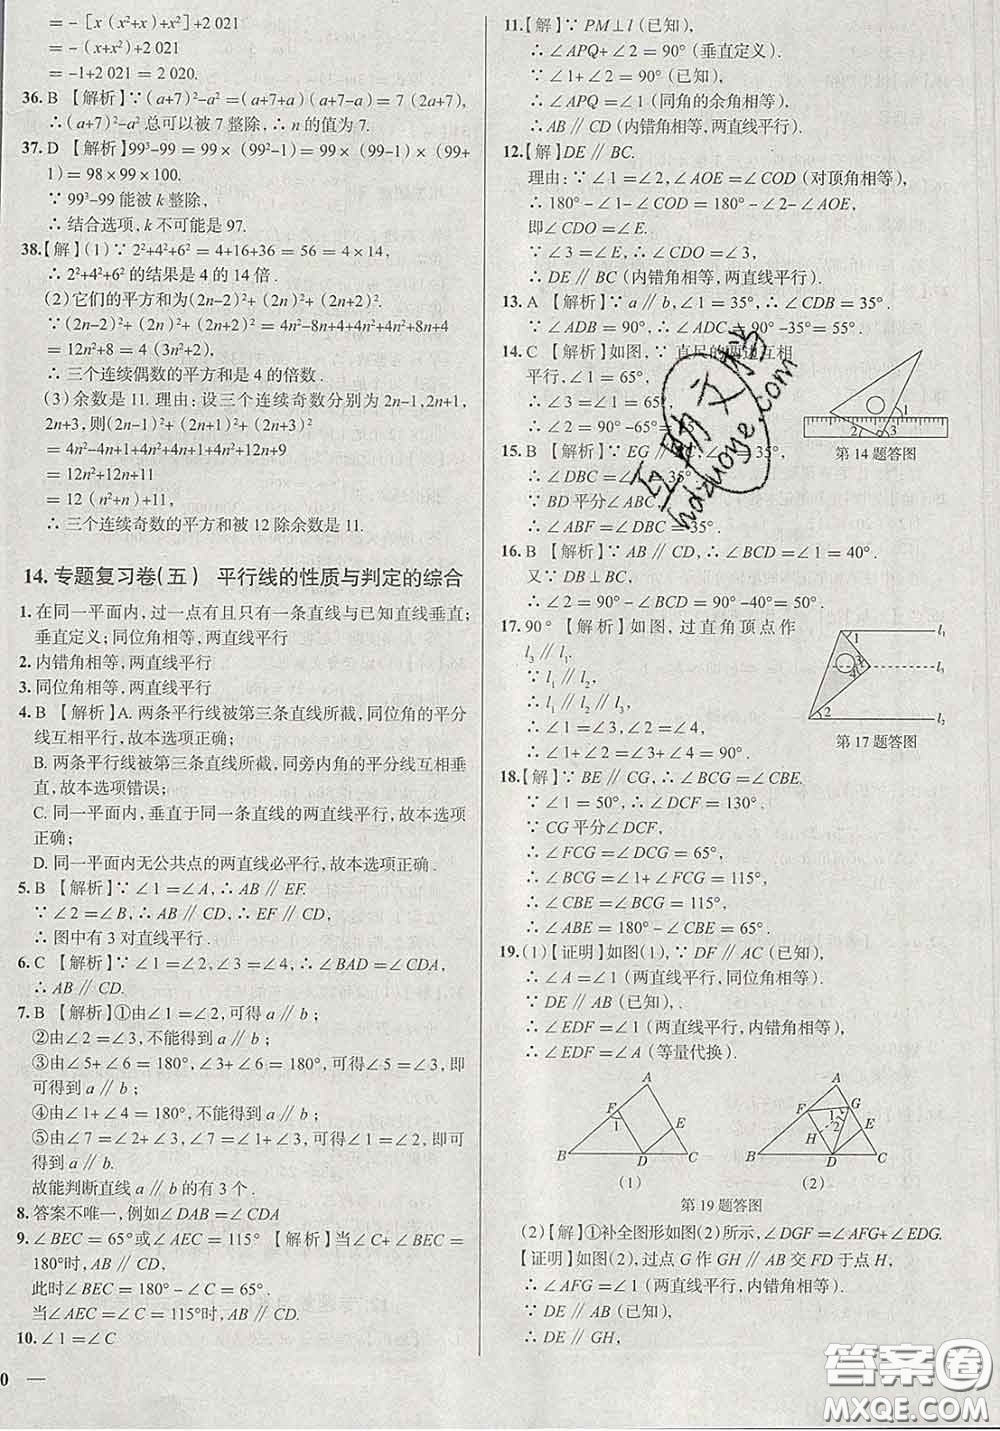 =-[x(x²+x)+x²]+2 021
=-(x+x²)+2 021
=-1+2 021=2 020.
36. B 【解析】∵(a+7)²-a²=(a+7+a)(a+7-a)=7(2a+7),
∴(a+7)²-a²总可以被 7 整除,∴n的值为 7.
37. D 【解析】99³-99=99×(99²-1)=99×(99-1)×(99+
1)=98×99×100.
∵99³-99 能被 k 整除,
∴结合选项,k 不可能是 97.
38.【解】(1)∵2²+4²+6²=4+16+36=56=4×14,
∴2²+4²+6² 的结果是 4 的 14 倍.
(2)它们的平方和为(2n-2)²+(2n)²+(2n+2)².
∵(2n-2)²+(2n)²+(2n+2)²=4n²-8n+4+4n²+4n²+8n+4
=12n²+8=4(3n²+2),
∴三个连续偶数的平方和是 4 的倍数.
(3)余数是 11. 理由:设三个连续奇数分别为 2n-1,2n+1,
2n+3,则(2n-1)²+(2n+1)²+(2n+3)²
=4n²-4n+1+4n²+4n+1+4n²+12n+9
=12n²+12n+11
=12(n²+n)+11,
∴三个连续奇数的平方和被 12 除余数是 11.
14. 专题复习卷(五) 平行线的性质与判定的综合
1. 在同一平面内,过一点有且只有一条直线与已知直线垂直;
垂直定义;同位角相等,两直线平行
2. 内错角相等,两直线平行
3. 同位角相等,两直线平行
4. B 【解析】A. 两条平行线被第三条直线所截,同位角的平分
线互相平行,故本选项正确;
B. 两条平行线被第三条直线所截,同旁内角的平分线互相垂
直,故本选项错误;
C. 同一平面内,垂直于同一条直线的两直线平行,故本选项
正确;
D. 同一平面内无公共点的两直线必平行,故本选项正确.
5. B 【解析】∵∠1=∠A,∴AB∥EF.
∵∠2=∠B,∴AB∥CD,∴EF∥CD,
∴图中有 3 对直线平行.
6. C 【解析】∵∠1=∠2,∠3=∠4,∴∠BAD=∠CDA,
∴AB∥CD.
7. B 【解析】①由∠1=∠2,可得 a∥b;
②由∠2=∠3,不能得到 a∥b;
③由∠5+∠6=180°,∠3+∠6=180°,可得∠5=∠3,
可得到 a∥b;
④由∠1+∠4=180°,不能得到 a∥b;
⑤由∠7=∠2+∠3,∠7=∠1+∠3,可得∠1=∠2,即可
得到 a∥b.
故能判断直线 a∥b 的有 3 个.
8. 答案不唯一,例如∠DAB=∠CDA
9. ∠BEC=65°或∠AEC=115° 【解析】当∠C+∠BEC=
180°时,AB∥CD,
此时∠BEC=180°-∠C=65°.
当∠AEC=∠C=115°时,AB∥CD.
10. ∠1=∠C
0
11.【解】∵PM⊥l(已知),
∴∠APQ+∠2=90°(垂直定义).
∵∠1+∠2=90°(已知),
∴∠APQ=∠1(同角的余角相等),
∴AB∥CD(内错角相等,两直线平行).
12.【解】DE∥BC.
理由:∵∠1=∠2,∠AOE=∠COD(对顶角相等),
∴180°-∠1-∠COD=180°-∠2-∠AOE,
即∠CDO=∠E.
∵∠3=∠E,∴∠CDO=∠3,
∴DE∥BC(内错角相等,两直线平行).
13. A 【解析】∵a∥b,∠1=35°,∴∠CDB=35°.
∵∠ADB=90°,∴∠ADC=90°-35°=55°.
14. C 【解析】如图,∵直尺的两边互相
平行,∠1=65°,
∴∠3=∠1=65°,
∴∠2=90°-65°=
1
2
3
第 14 题答图
15. B 【解析】∵EG∥BC,∠1=35°,
∴∠DBC=∠1=35°.
∵BD平分∠ABC,
∴∠ABF=∠DBC=35°.
16. B 【解析】∵AB∥CD,∴∠BCD=∠1=40°.
又∵DB⊥BC,
∴∠2=90°-∠BCD=90°-40°=50°.
17. 90° 【解析】如图,过直角顶点作
l₃∥l₁.
∵l₁∥l₂,
∴l₁∥l₂∥l₃,
∴∠1=∠3,∠2=∠4,
∴∠1+∠2=∠3+∠4=90°.
1
l₁
3
4
l₃
2
l₂
第 17 题答图
18.【解】∵BE∥CG,∴∠BCG=∠CBE.
∵∠1=50°,∴∠DCF=130°.
∵CG平分∠DCF,
∴∠FCG=∠DCG=65°,
∴∠BCG=∠1+∠FCG=115°,
∴∠CBE=∠BCG=115°,
∴∠ABE=180°-∠CBE=65°.
19. (1)【证明】如图(1),∵DF∥AC(已知),
∴∠A=∠1(两直线平行,同位角相等).
∵DE∥AB(已知),
∴∠EDF=∠1(两直线平行,内错角相等),
∴∠EDF=∠A(等量代换).
A
F
1
E
B
D
C
(1)
A
F
G
1
2
H
E
B
D
C
(2)
第 19 题答图
(2)【解】①补全图形如图(2)所示,∠DGF=∠AFG+∠EDG.
【证明】如图(2),过点 G 作 GH∥AB 交 FD 于点 H,
∴∠AFG=∠1(两直线平行,内错角相等).
∵DE∥AB(已知),
∴DE∥GH,
互助文档
hdzuoye.com
答案圈
MXQE.COM